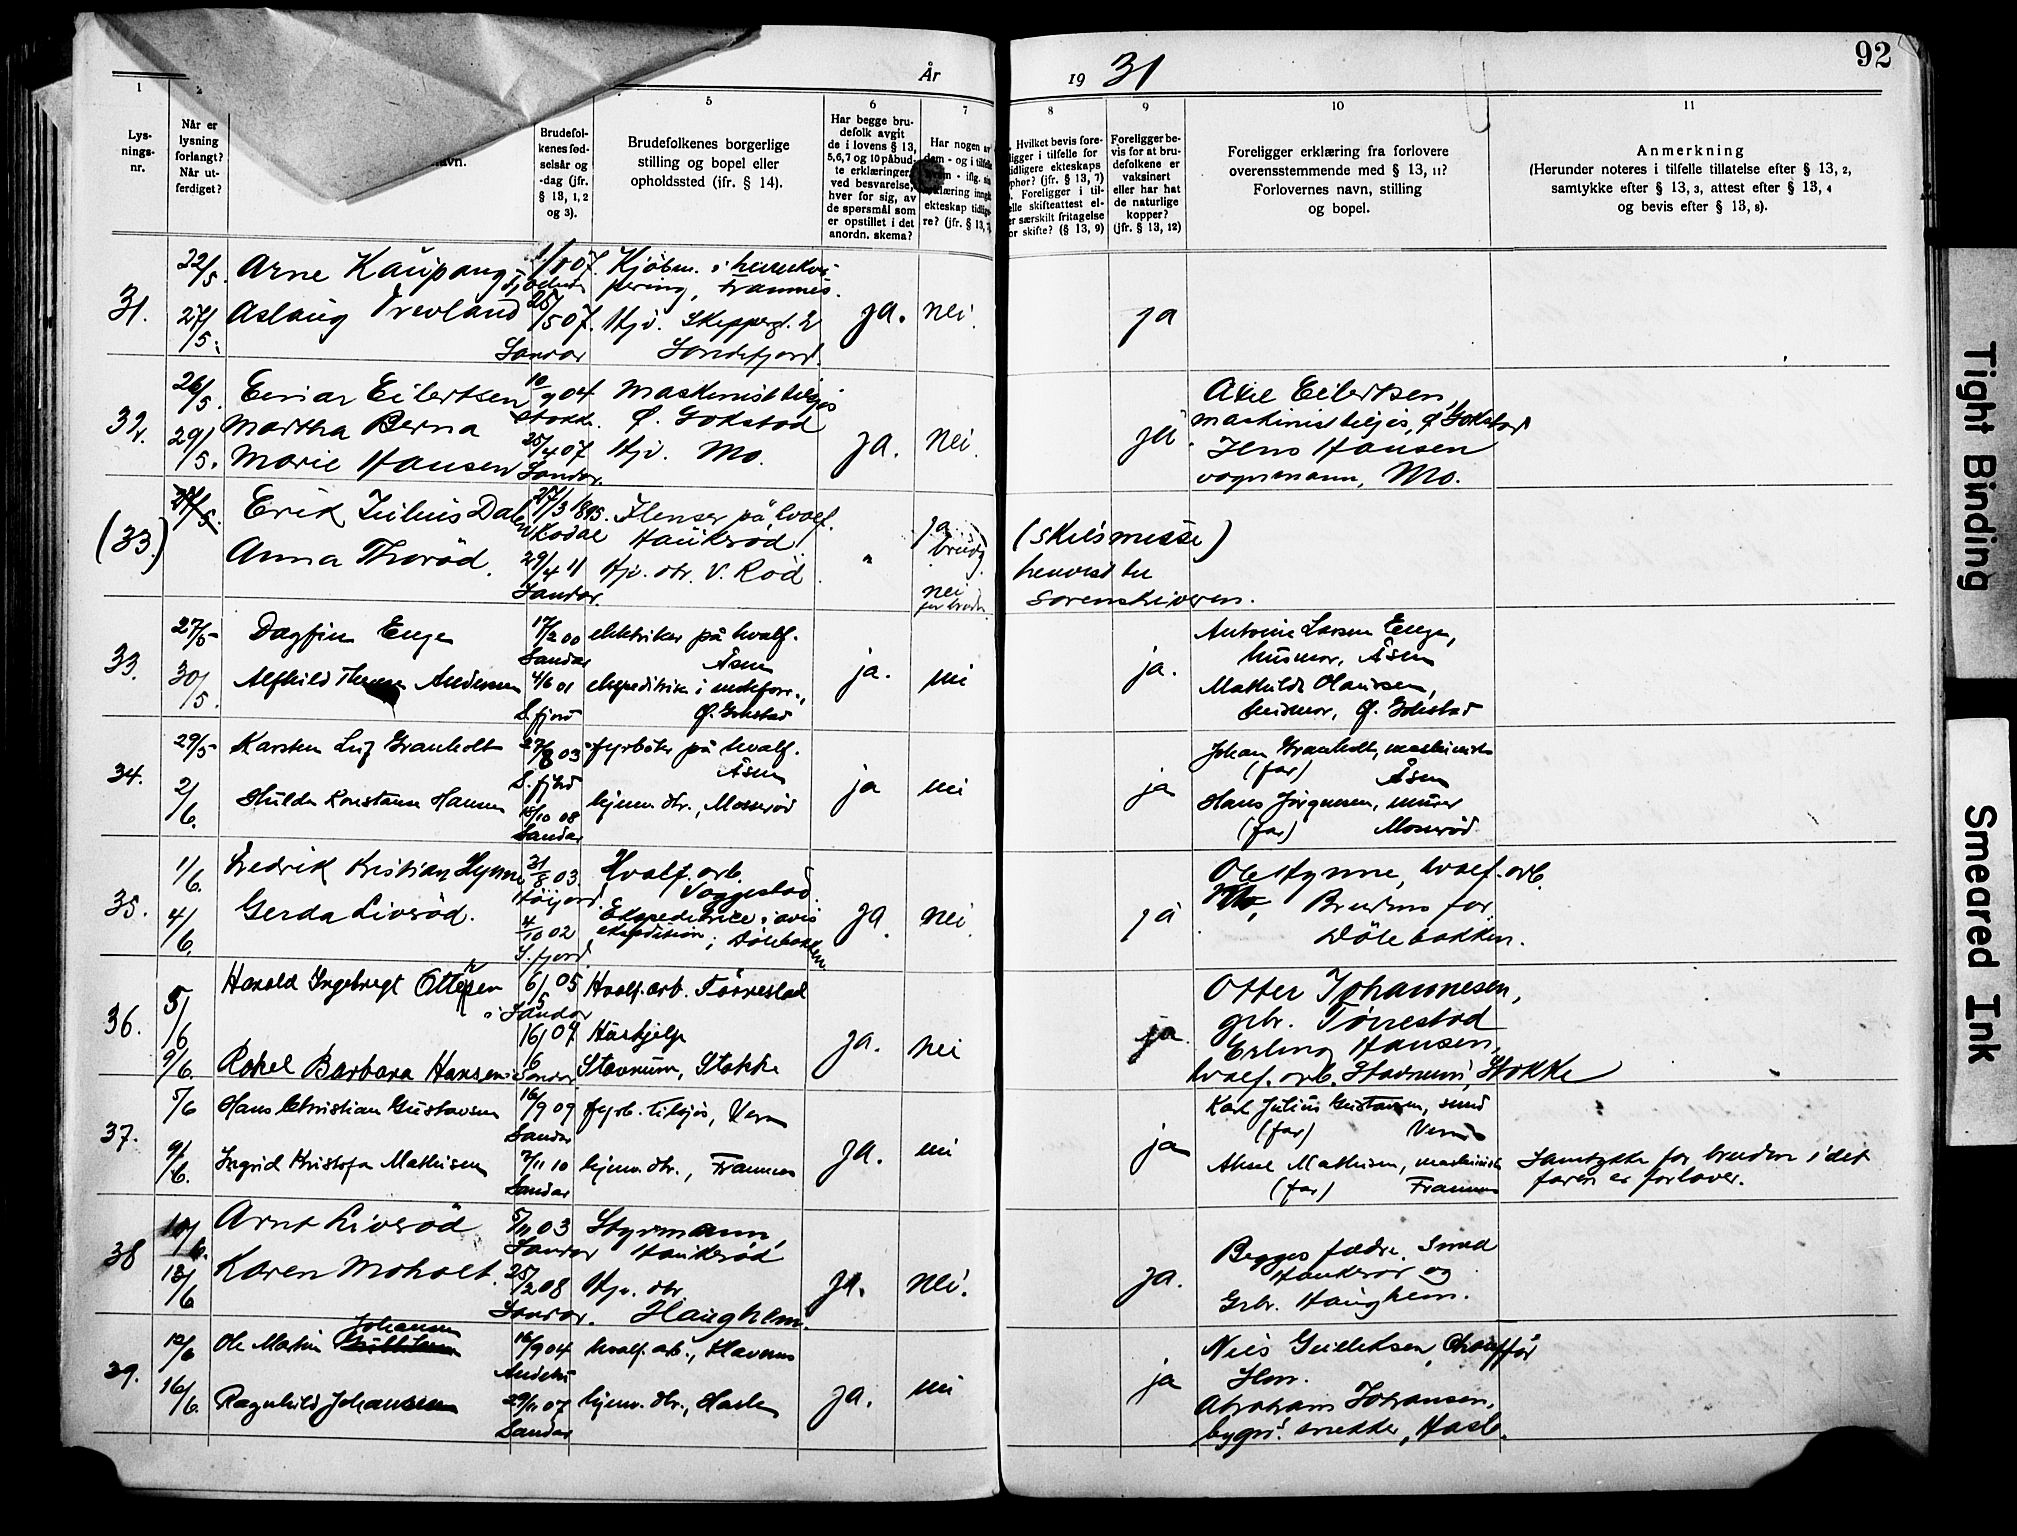 92
År 1931
1
5
6
7
8
9
10
11
Lys-
nings-
nr.
Når er
lysning
forlangt?
Når ut-
ferdiget?
Brudefol-
kenes fød-
selsår og
-dag (jfr.
§ 13, 1,2
og 3).
Brudefolkenes borgerlige
stilling og bopel eller
opholdssted (ifr. § 14).
Har begge bru-
defolk avgit
de i lovens § 13,
5,6,7 og 10 påbud-
te erklæringer,
ved besvarelse,
hver for sig, av
de spørsmål som
er opstillet i det
anordn. skema?
Har nogen av
dem - og i tilfelle
ekteskap tidlige-
re? (jfr. § 13, 7
Hvilket bevis fore-
ligger i tilfelle for
tidligere ekteskaps
ophør? (jfr. § 13, 7)
Foreligger i til-
elle skifteattest el-
er særskilt fritagelse
or skifte? (§ 13, 9)
Foreligger be-
vis for at bru-
defolkene er
vaksinert
eller har hat
de naturlige
kopper?
(jfr. § 13, 12)
Foreligger erklæring fra forlovere
overensstemmende med § 13, 11?
Forlovernes navn, stilling
og bopel.
Anmerkning
(Herunder noteres i tilfelle tillatelse efter § 13, 2,
samtykke efter § 13, 3, attest efter § 13, 4
og bevis efter § 13, 8).
31.
22/5.
27/5.
Arne Kaupang
Aslaug Trevland
25/5 07.
Sandar
Framnes.
Hjv. Skippergt. 2
Sandefjord.
ja.
nei.
ja
32.
26/5.
29/5.
Einar Eilertsen
Martha Berna
Marie Hansen
10/9 04
Stokke.
25/4 07
Sandar.
Maskinist tilsjøs
Ø. Gokstad
Hjv. Mo.
ja.
nei.
ja.
Axel Eilertsen,
maskinist tilsjøs, Ø. Gokstad
Jens Hansen
vognmann, Mo.
(33.)
27/5.
Erik Julius Dalen
Anna Thorød.
27/3 1895.
Kodal
29/4 11
Sandar.
Flenser på hvalf.
Haukerød
Hjv. dtr. V. Rød
"
ja
brudg.
nei
for bruden
(skilsmisse)
henvist til
Sorenskriveren.
33.
27/5
30/5.
Dagfin Enge
Alfhild Andersen
17/2 00
Sandar
4/6 01
S.fjord
elektriker på hvalf.
Åsen
Ø. Gokstad
ja.
nei
ja.
Antonie Larsen Enge,
husmor, Åsen
Mathilde Olausen,
husmor, Ø. Gokstad
34.
29/5
2/6.
Karsten Granholt
Hulda Konstanse Hansen
27/8 03
S.fjord
15/10 08
Sandar
fyrbøter på hvalf.
Åsen
hjemv. dtr., Moserød
ja
nei
ja
Johan Granholt, maskinist
(far) Åsen
Hans Jørgensen, murer
(far) Moserød
35.
1/6.
4/6.
Fredrik Kristian Hynne
Gerda Liverød.
31/8 03.
Høijord.
4/10 02
S.fjord.
Hvalf. arb.
Vaggestad.
Ekspeditrice i avis
ekspedition; Dølebakken.
ja.
nei.
ja
Ole Hynne, hvalf. arb.
Brudens far.
Dölebakken.
36.
5/6
9/6.
Harald Ingebrigt Ottersen
Rakel Barbara Hansen
6/5 05
i Sandar
16/6 07
Sandar
Hvalf. arb. Tørrestad
Hushjelp
Stavnum, Stokke
ja.
nei
ja.
Otter Johannesen,
grbr. Tørrestad
Erling Hansen,
hvalf. arb. Stavnum, Stokke
37.
5/6
9/6.
Hans Christian Gustavsen
Ingrid Kristofa Mathisen
16/9 09
Sandar
7/11 10
Sandar
fyrb. tilsjøs, Vera
hjemv. dtr., Framnes
ja.
nei
ja
Karl Julius Gustavsen, smed
(far)
Aksel Mathisen, maskinist
(far) Framnes
Samtykke for bruden idet
faren er forlover.
38
10/6.
13/6
Arne Liverød
Karen Moholt.
5/11 03
Sandar
25/2 08
Sandar.
Styrmann,
Haukerød
Hjv. dtr.
Haughem.
ja.
nei.
ja.
Begges fædre. Smed
Haukerød og
Grbr. Haughem.
39.
12/6
16/6.
Ole Martin Johansen
Ragnhild Johansen
16/9 04
Andebu
29/11 07
Sandar
hvalf. arb., Havnes
hjemv. dtr., Hasle
ja.
nei
ja
Nils Gulliksen, Chauffør
Hem.
Abraham Johansen,
bygn. snekker, Hasle.
Tight Binding
Smeared Ink